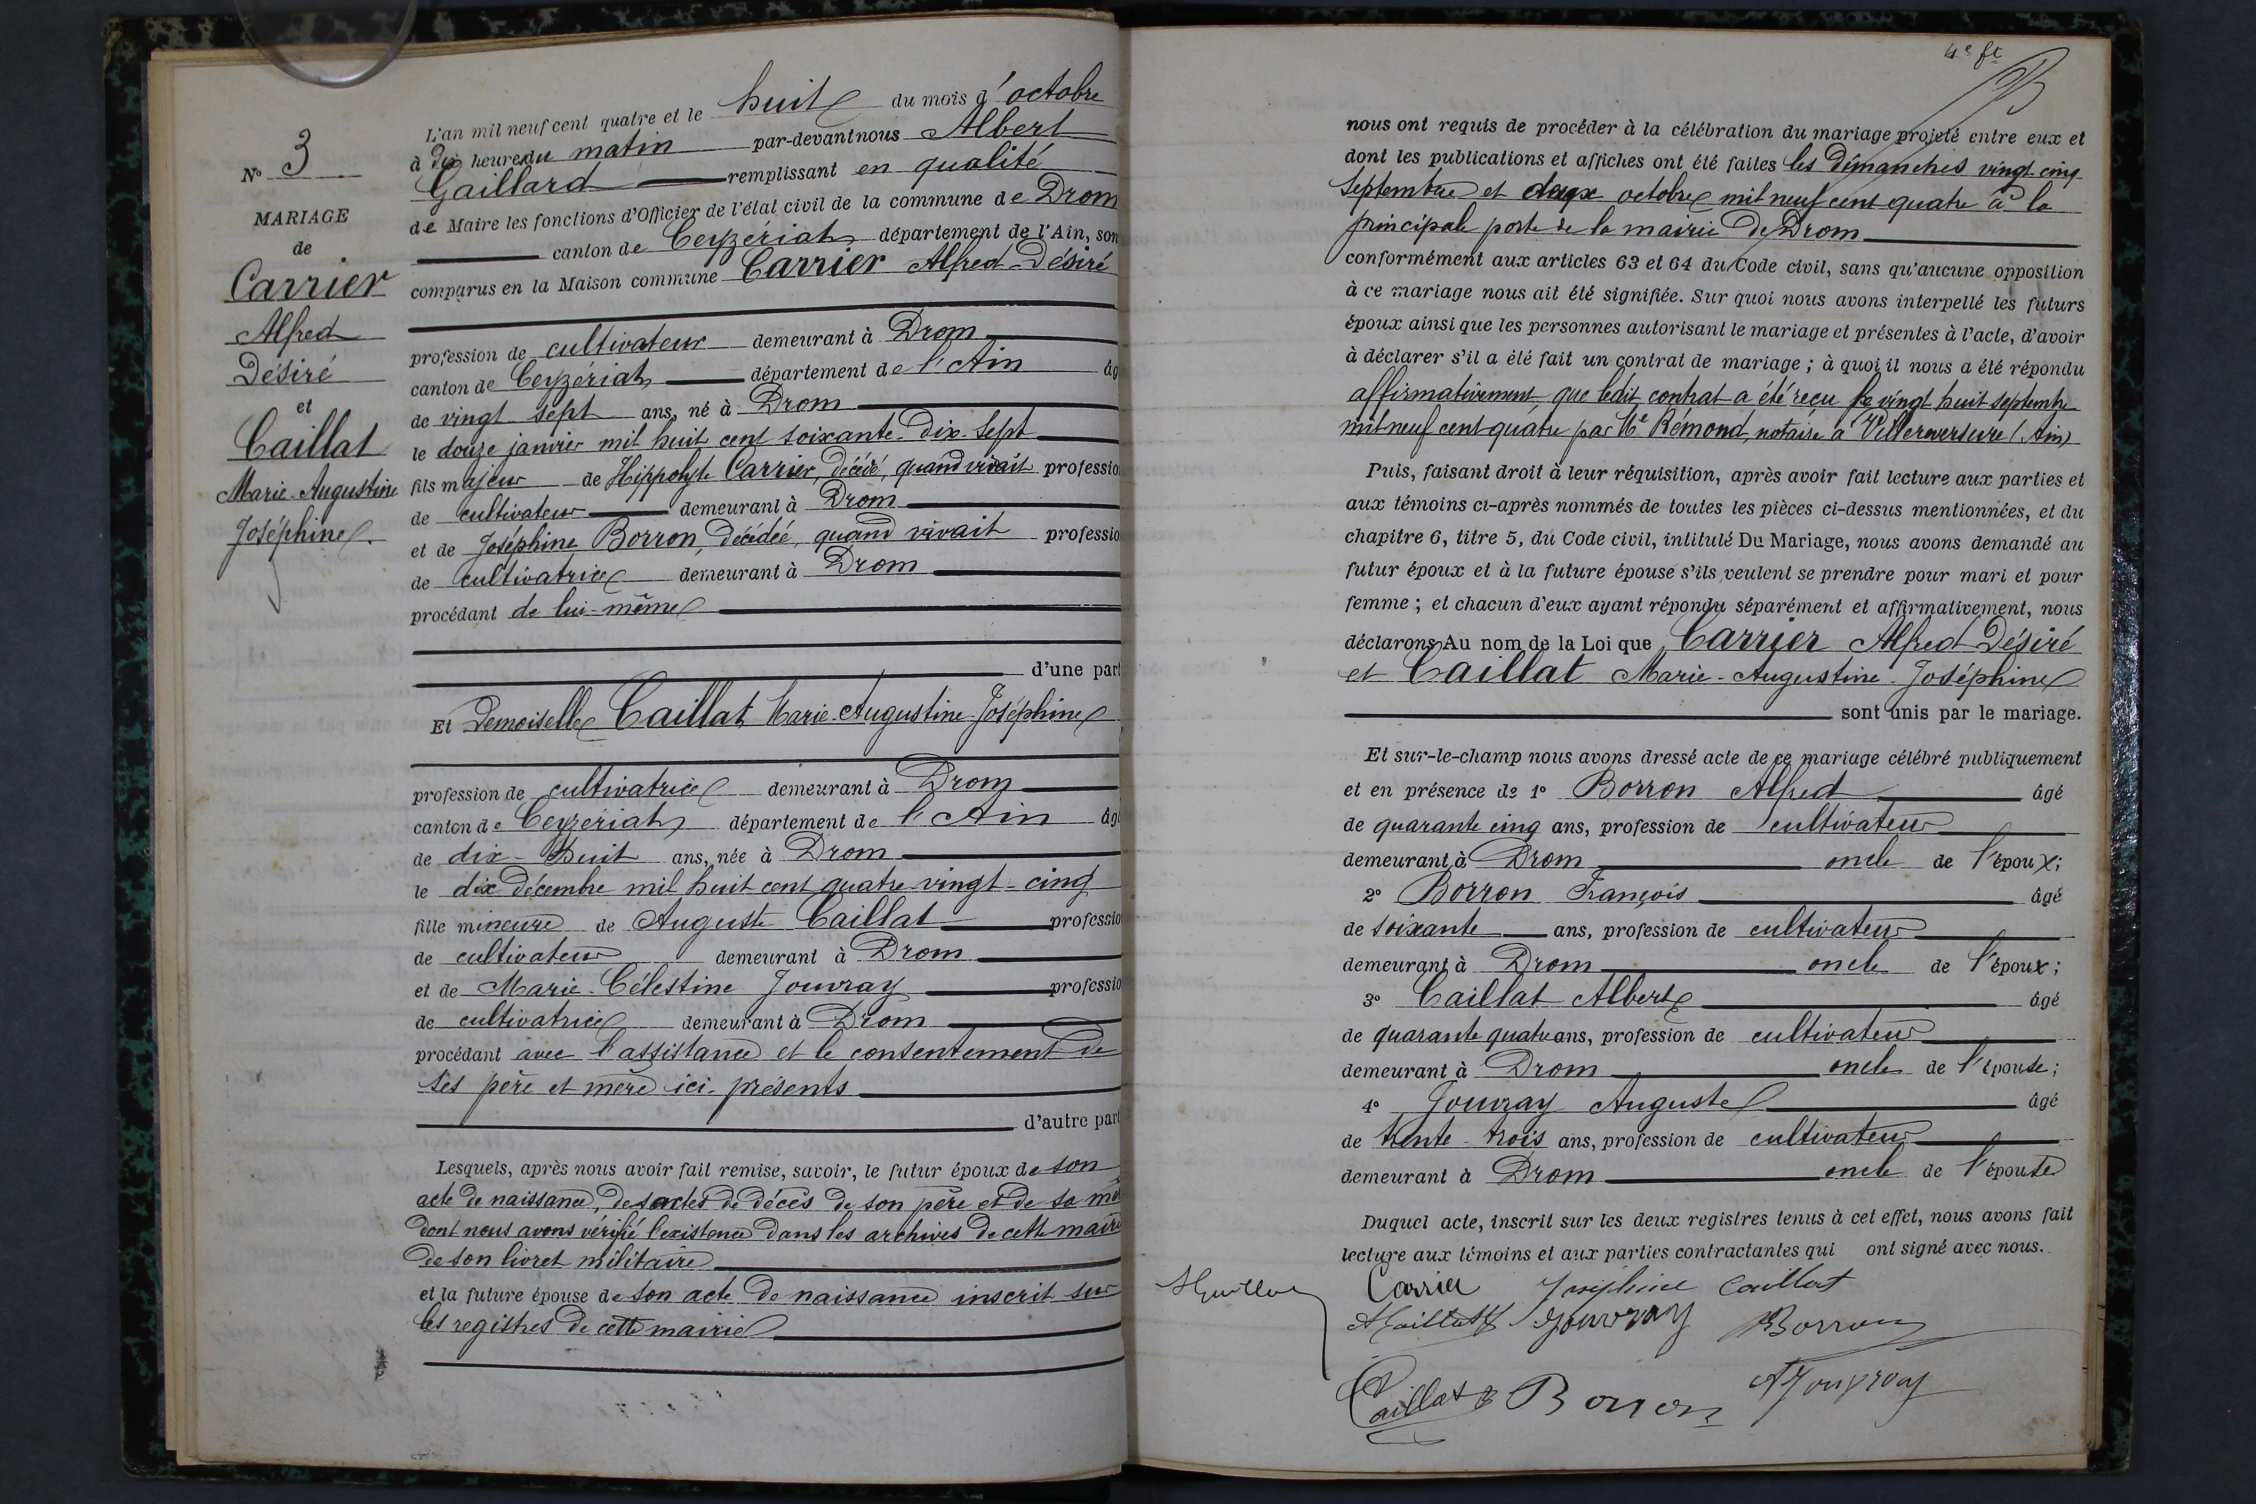 Nº 3
MARIAGE
de
Carrier
Alfred
Désiré
et
Caillat
Marie-Augustine
Joséphine.
L'an mil neuf cent quatre et le huit du mois d'octobre
à dix heures du matin par-devant nous Albert
Gaillard remplissant en qualité
de Maire les fonctions d'Officier de l'état civil de la commune de Drom
canton de Ceyzériat département de l'Ain, son
comparus en la Maison commune Carrier Alfred Désiré
profession de cultivateur demeurant à Drom
canton de Ceyzériat département de l'Ain âg
de vingt sept ans, né à Drom
le douze janvier mil huit cent soixante-dix-sept
fils majeur de Hippolyte Carrier, décédé, quand vivait professio
de cultivateur demeurant à Drom
et de Joséphine Borron, décédée, quand vivait professio
de cultivatrice demeurant à Drom
procédant de lui-même
d'une part
Et Demoiselle Caillat Marie-Augustine-Joséphine
profession de cultivatrice demeurant à Drom
canton de Ceyzériat département de l'Ain âgé
de dix-huit ans, née à Drom
le dix décembre mil huit cent quatre-vingt-cinq
fille mineure de Auguste Caillat professio
de cultivateur demeurant à Drom
et de Marie-Célestine Jouvray professio
de cultivatrice demeurant à Drom
procédant avec l'assistance et le consentement de
ses père et mère ici présents
d'autre part
Lesquels, après nous avoir fait remise, savoir, le futur époux de son
acte de naissance, des actes de décès de son père et de sa mè
dont nous avons vérifié l'existence dans les archives de cette mairie
de son livret militaire
et la future épouse de son acte de naissance inscrit sur
les registres de cette mairie
4e ft
nous ont requis de procéder à la célébration du mariage projeté entre eux et
dont les publications et affiches ont été faites les Dimanches vingt-cinq
Septembre et deux octobre mil neuf cent quatre à la
principale porte de la mairie de Drom
conformément aux articles 63 et 64 du Code civil, sans qu'aucune opposition
à ce mariage nous ait été signifiée. Sur quoi nous avons interpellé les futurs
époux ainsi que les personnes autorisant le mariage et présentes à l'acte, d'avoir
à déclarer s'il a été fait un contrat de mariage ; à quoi il nous a été répondu
affirmativement, que ledit contrat a été reçu le vingt huit septembre
mil neuf cent quatre par Me Rémond, notaire à Villereversure (Ain)
Puis, faisant droit à leur réquisition, après avoir fait lecture aux parties et
aux témoins ci-après nommés de toutes les pièces ci-dessus mentionnées, et du
chapitre 6, titre 5, du Code civil, intitulé Du Mariage, nous avons demandé au
futur époux et à la future épouse s'ils veulent se prendre pour mari et pour
femme ; et chacun d'eux ayant répondu séparément et affirmativement, nous
déclarons Au nom de la Loi que Carrier Alfred Désiré
et Caillat Marie-Augustine-Joséphine
sont unis par le mariage.
Et sur-le-champ nous avons dressé acte de ce mariage célébré publiquement
et en présence de 1º Borron Alfred âgé
de quarante cinq ans, profession de cultivateur
demeurant à Drom oncle de l'époux;
2º Borron François âgé
de soixante ans, profession de cultivateur
demeurant à Drom oncle de l'époux;
3º Caillat Albert âgé
de quarante quatre ans, profession de cultivateur
demeurant à Drom oncle de l'épouse;
4º Jouvray Auguste âgé
de trente-trois ans, profession de cultivateur
demeurant à Drom oncle de l'épouse
Duquel acte, inscrit sur les deux registres tenus à cet effet, nous avons fait
lecture aux témoins et aux parties contractantes qui ont signé avec nous.
AGaillard Carrier Joséphine Caillat
ACaillat Jouvray Borron
Caillat Borron AJouvray